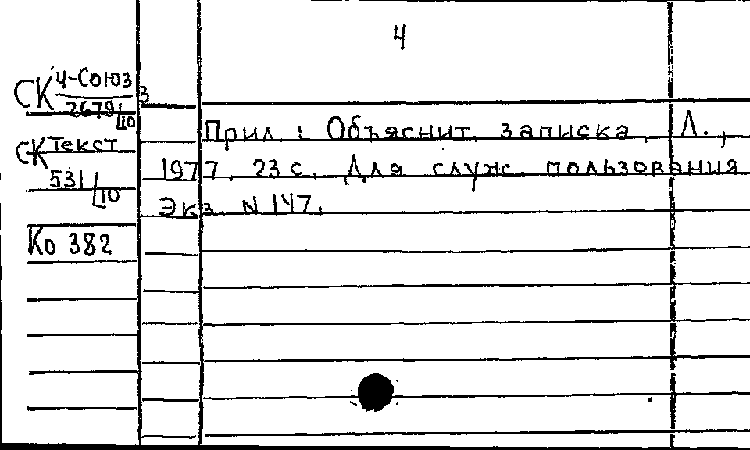 4
СК 4-Союз 3
2679/10
СК Текст
531/10
Ко 382
Прил.: Объяснит. записка. Л.,
1977. 23 с. Для служ. пользования
Экз. N 147.